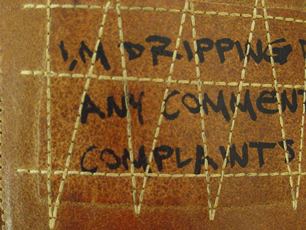 I'M DRIPPING
ANY COMMENT
COMPLAINTS